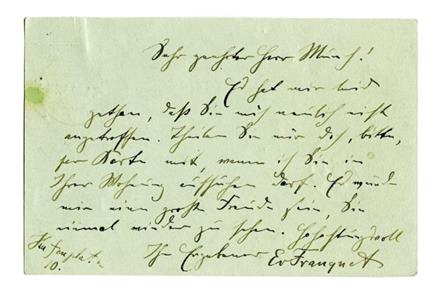 Sehr geehrter Herr Münch!
Es hat mir leid
gethan, daß Sie mich neulich nicht
angetroffen. Theilen Sie mir doch, bitte,
per Karte mit, wann ich Sie in
Ihrer Wohnung aufsuchen darf. Es würde
mir eine große Freude sein, Sie
einmal wieder zu sehen. Hochachtungsvoll
Ihr Ergebener
10.